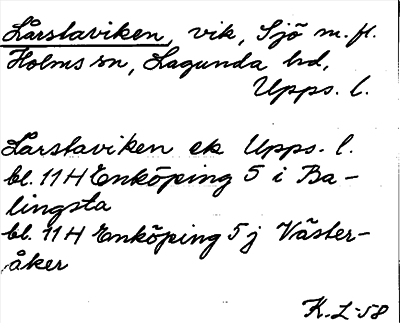 Lårstaviken, vik, Sjö m.fl.
Holms sn, Lagunda hd,
Upps. l.
Lårstaviken ek Upps. l.
bl. 11H Enköping 5 i Ba-
lingsta
bl. 11H Enköping 5 j Väster-
åker
K.L-58